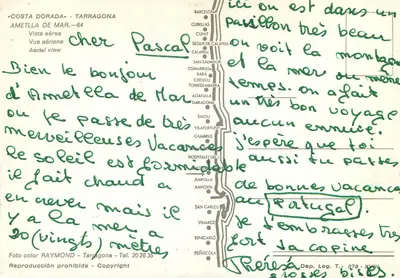 «COSTA DORADA» - TARRAGONA
AMETLLA DE MAR.—64
Vista aérea
Vue aérienne
Aerial view
cher Pascal
Bien le bonjour
d'Ametlla de Mar
ou je passe de tres
merveilleuses Vacances
le soleil est formidable
il fait chaud a
en crever mais il
y a la mer a
20 (vingts) mètres
Foto color RAYMOND - Tarragona - Tel. 20 26 35
Reproducción prohibida - Copyright
BARCELONA
CUBELLAS
CUNIT
CALAFELL
SAN SALVADOR
COMARRUGA
BARÁ
CREIXELL
TORREDEMBARRA
ALTAFULLA
TARRAGONA
SALOU
VILAFORTUNY
CAMBRILS
AMPOLLA
AMPOSTA
SAN CARLOS
VINAROZ
BENICARLÓ
PEÑISCOLA
ici on est dans un
pavillon tres beau
on voit la montagne
et la mer au même
temps. on a fait
un très bon voyage
aucun ennuie.
j'espère que toi
aussi tu passes
de bonnes vacances
au Portugal.
je t'embrasses tres
fort ta copine
Thérèse
Dep. Leg. T.